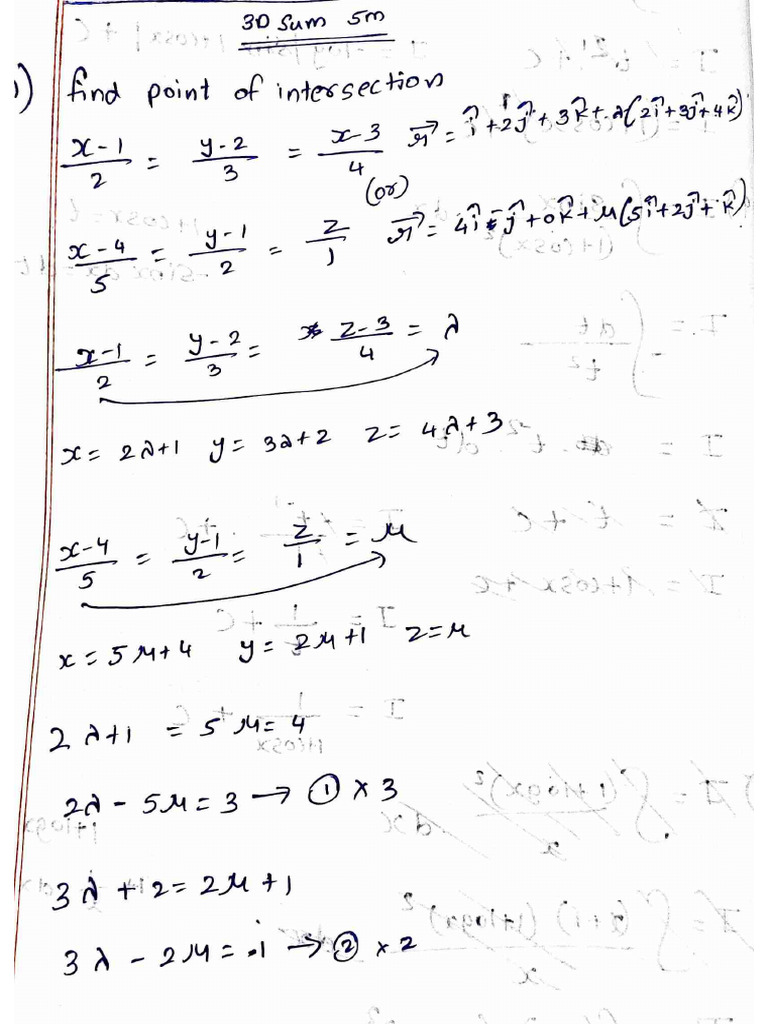 3D Sum 5m
1) find point of intersection
x-1/2 = y-2/3 = x-3/4 r⃗ = î+2ĵ+3k̂+λ(2î+3ĵ+4k̂)
(or)
x-4/5 = y-1/2 = z/1 r⃗ = 4î-ĵ+0k̂+μ(5î+2ĵ+k̂)
x-1/2 = y-2/3 = z-3/4 = λ
x = 2λ+1 y = 3λ+2 z = 4λ+3
x-4/5 = y-1/2 = z/1 = μ
x = 5μ+4 y = 2μ+1 z=μ
2λ+1 = 5μ=4
2λ - 5μ = 3 → ① × 3
3λ + 2 = 2μ + 1
3λ - 2μ = -1 → ② × 2